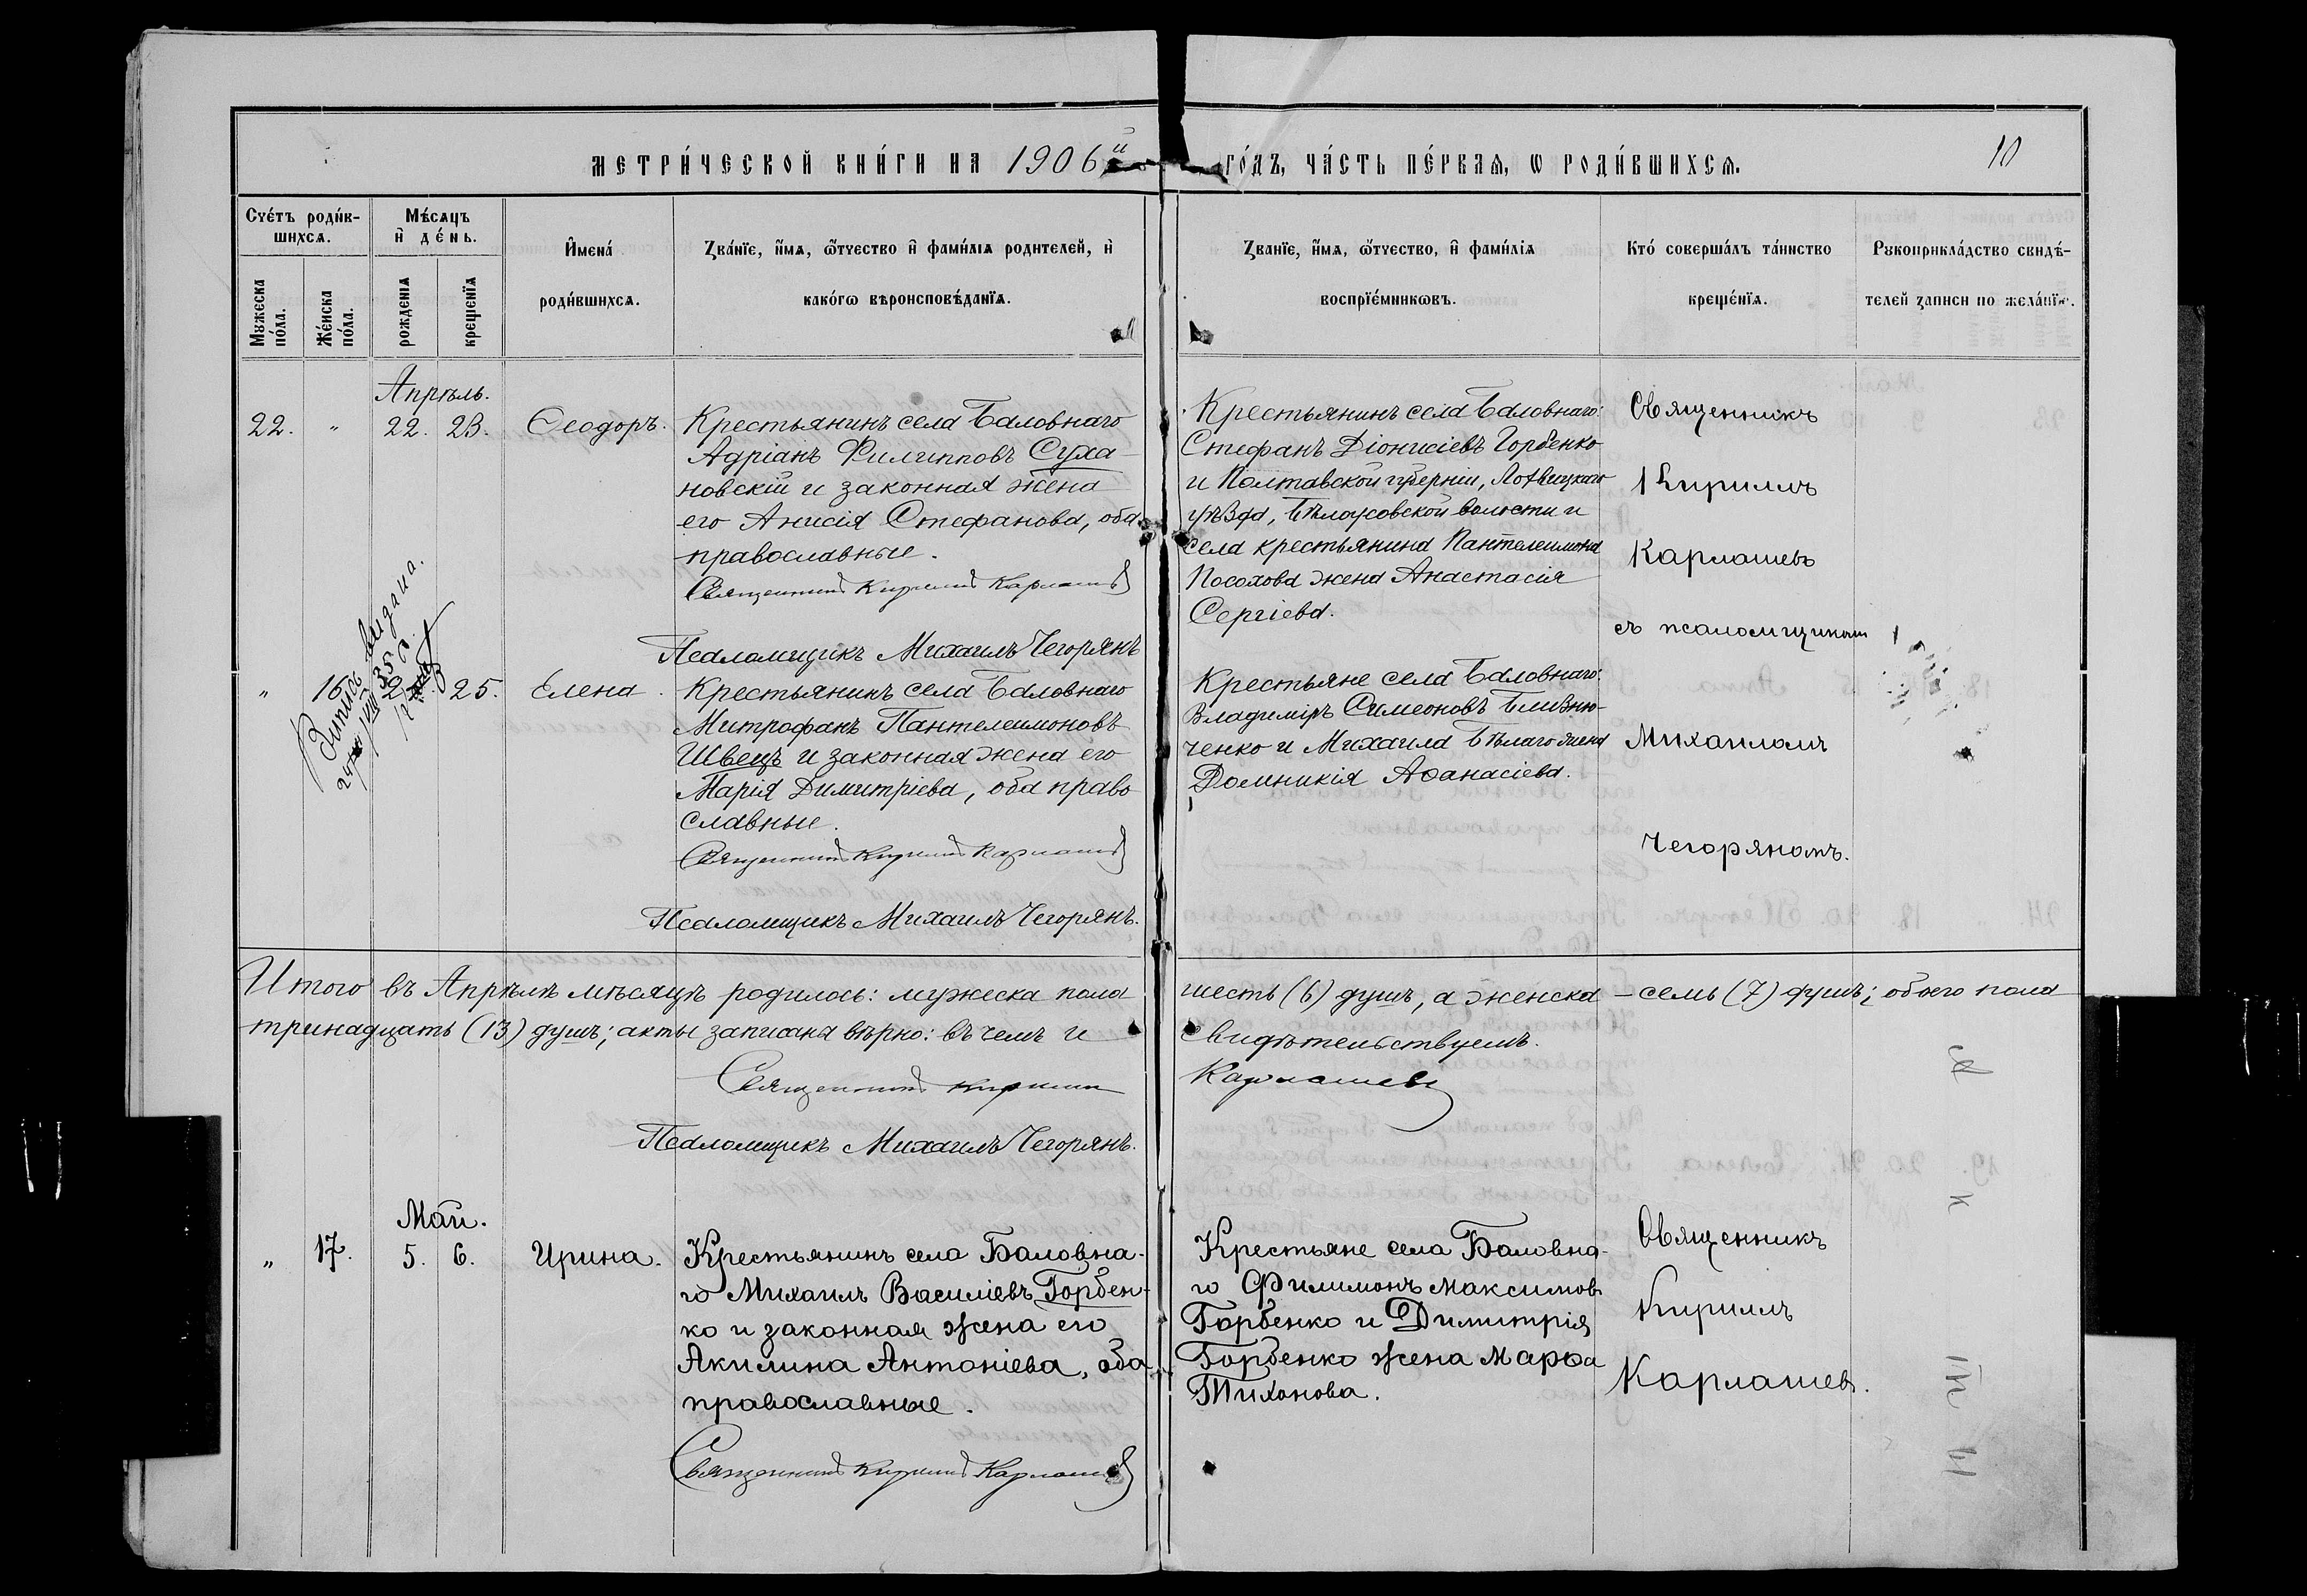 МЕТРИ́ЧЕСКОЙ КНИ́ГИ НА 1906й ГО́ДЪ, ЧА́СТЬ ПЕ́РВАѦ, Ѡ РОДИ́ВШИХСѦ.
10
Сче́тъ роди́в-
шихсѧ.
Мѣ́сѧцъ
и҆ де́нь.
Мꙋжеска по́ла.
Же́нска по́ла.
рожденїѧ
крещенїѧ
И҆мена́
роди́вшихсѧ.
Зва́нїе, и҆́мѧ, ѻ҆́тчество и҆ фами́лїѧ родителей, и҆
како́гѡ вѣроисповѣ́данїѧ.
Зва́нїе, и҆́мѧ, ѻ҆́тчество, и҆ фами́лїѧ
воспрїе́мникѡвъ.
Кто́ соверша́лъ та́инство
креще́нїѧ.
Рꙋкоприкла́дство свидѣ́-
телей записи по жела́нїю.
Апрѣль.
22. " 22. 23. Ѳеодоръ.
Крестьянинъ села Баловнаго
Адріанъ Филипповъ Суха-
новскій и законная жена
его Анисія Стефанова, оба
православные.
Священникъ Кирилъ Карпашевъ
Псаломщикъ Михаилъ Чегорянъ
Крестьянинъ села Баловнаго:
Стефанъ Діонисіевъ Горбенко
и Полтавской губерніи, Лохвицкаго
уѣзда, Бѣлоусовской волости и
села крестьянина Пантелеимона
Посохова жена Анастасія
Сергіева.
Священникъ
Кириллъ
Карпашевъ
съ псаломщикомъ
Михаиломъ
Чегоряномъ.
" 16. 25. Елена.
Выпись выдана.
Крестьянинъ села Баловнаго
Митрофанъ Пантелеимоновъ
Швецъ и законная жена его
Марія Димитріева, оба право
славные.
Священникъ Кирилъ Карпашевъ
Псаломщикъ Михаилъ Чегорянъ.
Крестьяне села Баловнаго:
Владиміръ Симеоновъ Близню-
ченко и Михаила Бѣлаго жена
Домникія Аѳанасіева.
Итого въ Апрѣлѣ мѣсяцѣ родилось: мужеска пола шесть (6) душъ, а женска — семь (7) душъ; обоего пола
тринадцать (13) душъ; акты записаны вѣрно: въ чемъ и свидѣтельствуемъ.
Священникъ Кирилл Карпашевъ
Псаломщикъ Михаилъ Чегорянъ.
Май.
" 17. 5. 6. Ирина.
Крестьянинъ села Баловна-
го Михаилъ Василіевъ Горбен-
ко и законная жена его
Акилина Антоніева, оба
православные.
Священникъ Кирилъ Карпашевъ
Крестьяне села Баловна-
го Филимонъ Максимовъ
Горбенко и Димитрія
Горбенко жена Марѳа
Тихонова.
Священникъ
Кириллъ
Карпашевъ.